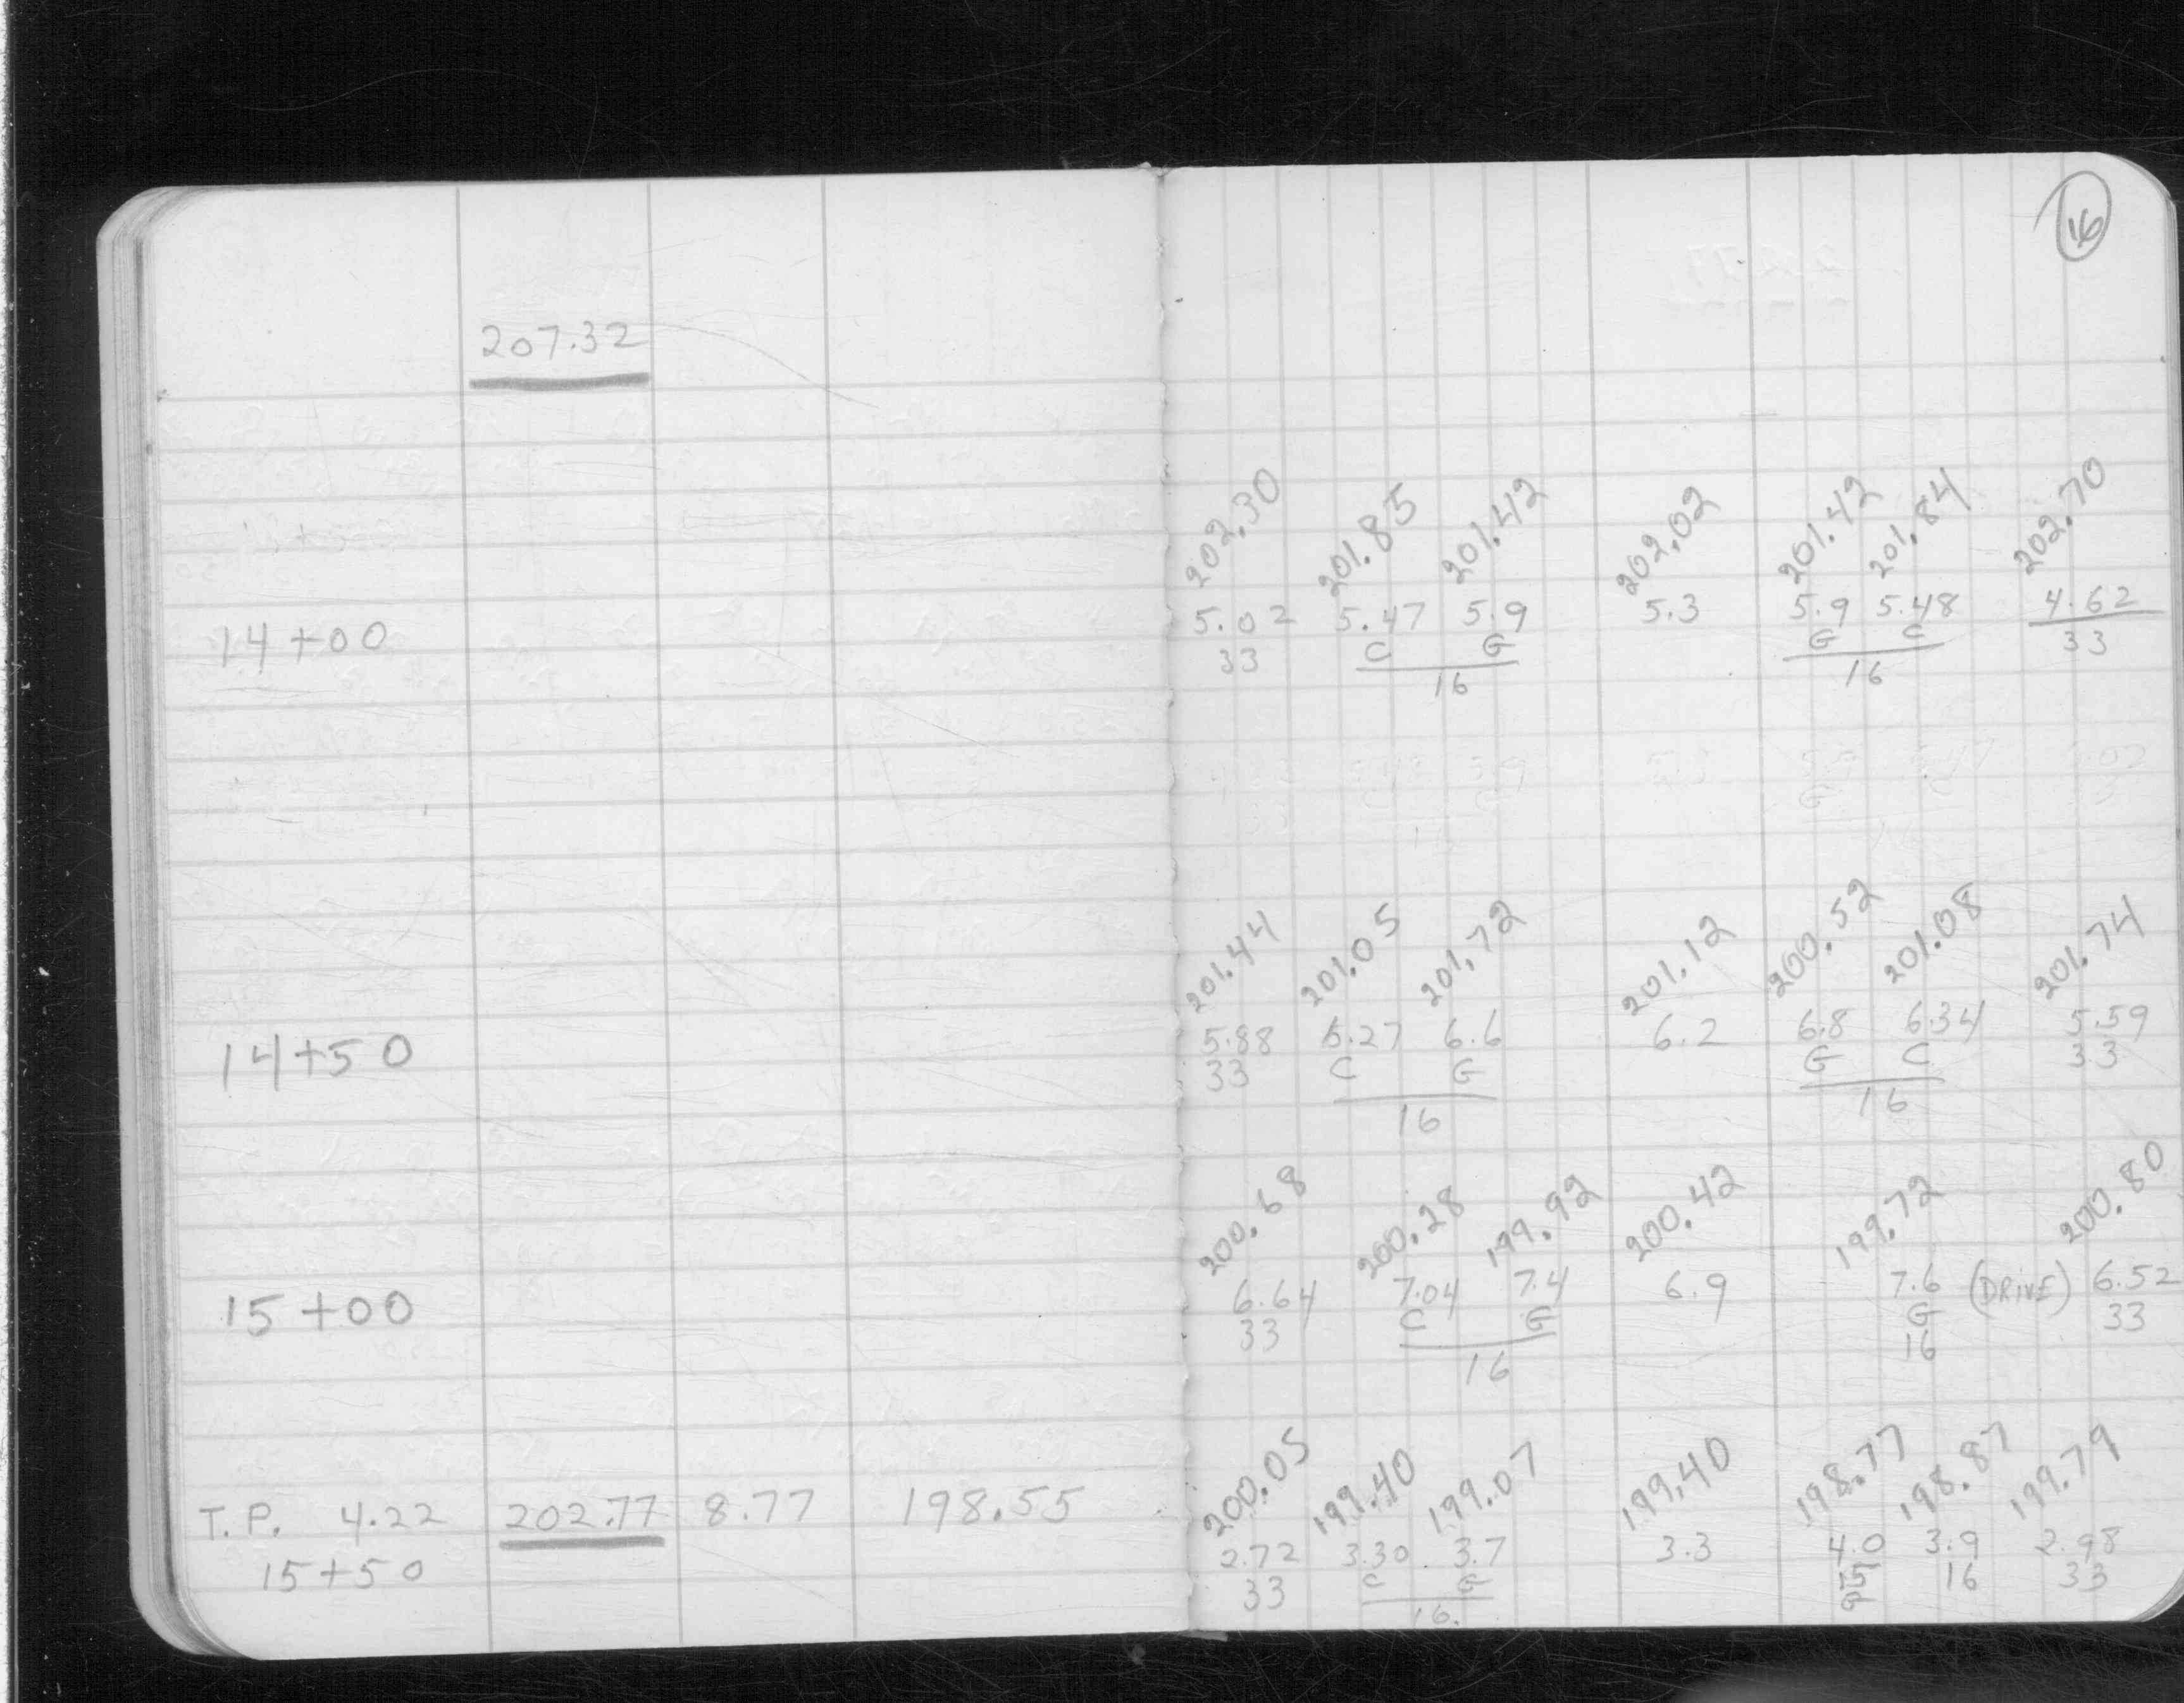 16
207.32
202.30 201.85 201.42 202.02 201.42 201.84 202.70
14+00 5.02 5.47 5.9 5.3 5.9 5.48 4.62
33 C G G C 33
16 16
201.44 201.05 201.72 201.12 200.52 201.08 201.74
14+50 5.88 6.27 6.6 6.2 6.8 6.34 5.59
33 C G G C 33
16 16
200.68 200.28 199.92 200.42 199.72 200.80
15+00 6.64 7.04 7.4 6.9 7.6 (DRIVE) 6.52
33 C G G 33
16 16
200.05 199.40 199.07 199.40 198.77 198.87 199.79
T.P. 4.22 202.77 8.77 198.55 2.72 3.30 3.7 3.3 4.0 3.9 2.98
15+50 33 C G 15 16 33
16. G